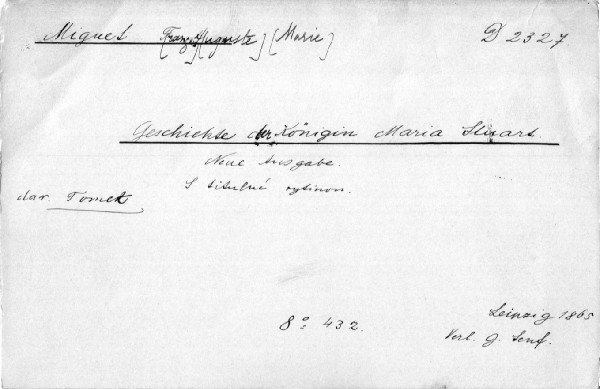 Mignet [Franz.] [Auguste] [Marie] D 2327
Geschichte der Königin Maria Stuart.
Neue Ausgabe.
S titulní rytinou.
dar. Tomek
8° 432.
Leipzig 1865
Verl. G. Senf.